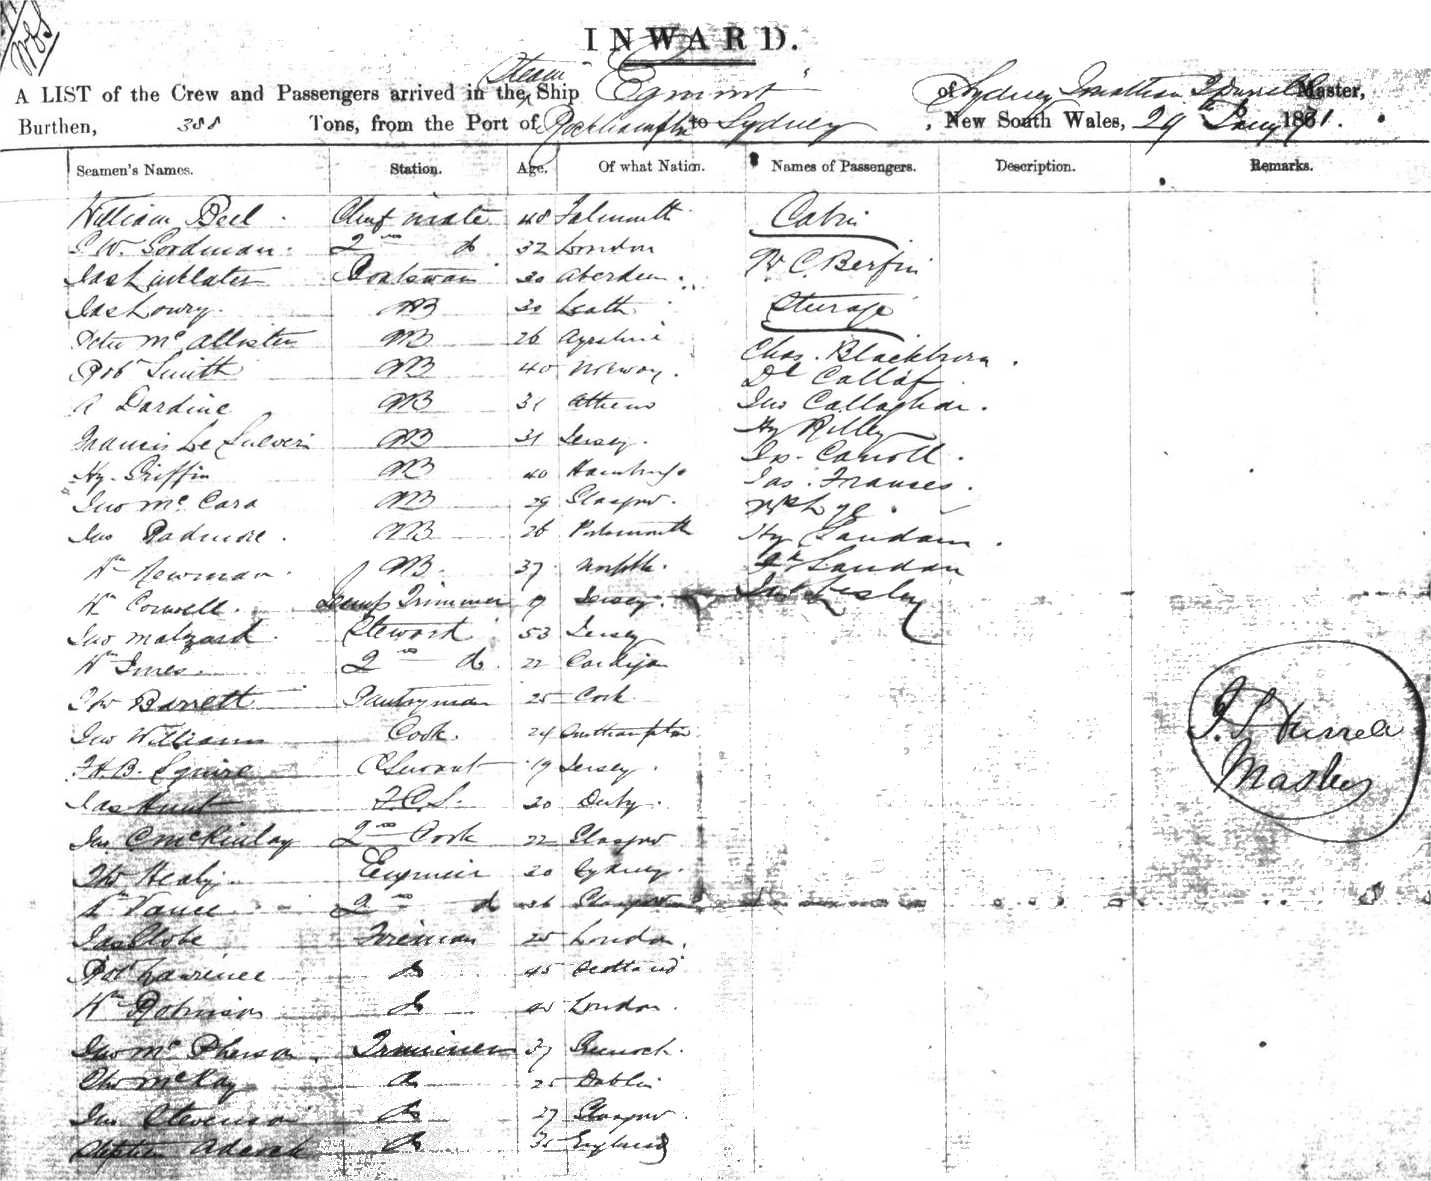 INWARD.
A LIST of the Crew and Passengers arrived in the Steam Ship Egmont of Sydney Jonathan Master,
Burthen, 388 Tons, from the Port of Rockhampton to Sydney, New South Wales, 29 Jany 1871.
Seamen's Names. Station. Age. Of what Nation. Names of Passengers. Description. Remarks.
William Bell Chief mate 48 Falmouth Cabin
Goodman 2nd do 32 London
Jas Linklater Boatswain 30 Aberdeen C. Berfin
Jas Lowry AB 30 Leith Steerage
Peter McAllister AB 26 Ayrshire
Robt Smith AB 40 Norway Chas. Blackburn
A Dardine AB 31 Athens Dl Callaf
Jno Callaghan
Francis Le AB 31 Jersey Hy Rilley
Hy Griffin AB 40 Hamburgh Carroll
Jno McCara AB 29 Glasgow Jas Franses
Jno Padmore AB 26 Portsmouth Hy Sandam
Wm Newman AB 37 Norfolk Landau
Wm Cornwell Lamp Trimmer Jersey Lesley
Jno Malzard Steward 53 Jersey
Wm Innes 2nd do 22
Thos Barrett Pantryman 25 Cork
Jno Williams Cook 24 Southampton
F.H.B. Squire C Servant 19 Jersey
Jas Hunt F.C.S. 20 Derby
Jno McKinlay 2nd Cook 22 Glasgow
Thos Healy Engineer 30 Sydney
Wm Vance 2nd do 36
Jas Globe Fireman 25 London
Robt Lawrence do 45 Scotland
Wm Robinson do London
Jno McPherson Trimmer 37 Greenock
Thos McKay do 25 Dublin
Jno Stevenson do 27 Glasgow
Stephen Adcock do England
Master